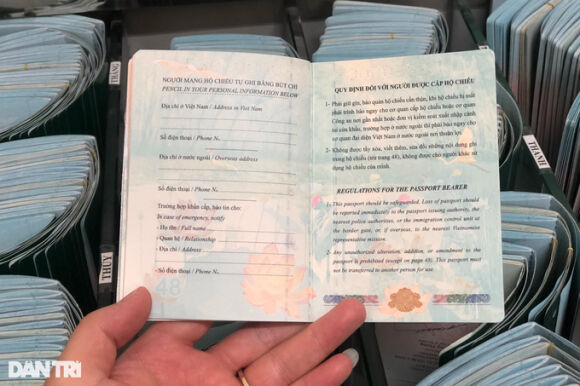 NGƯỜI MANG HỘ CHIẾU TỰ GHI BẰNG BÚT CHÌ
PENCIL IN YOUR PERSONAL INFORMATION BELOW
Địa chỉ ở Việt Nam / Address in Viet Nam
Số điện thoại / Phone No.
Địa chỉ ở nước ngoài / Overseas address
Số điện thoại / Phone No.
Trường hợp khẩn cấp, báo tin cho:
In case of emergency, notify
- Họ tên / Full name
- Quan hệ / Relationship
- Địa chỉ / Address
- Số điện thoại / Phone No.
48
QUY ĐỊNH ĐỐI VỚI NGƯỜI ĐƯỢC CẤP HỘ CHIẾU
1- Phải giữ gìn, bảo quản hộ chiếu cẩn thận, khi hộ chiếu bị mất
phải trình báo ngay cho cơ quan cấp hộ chiếu hoặc cơ quan
Công an nơi gần nhất hoặc đơn vị kiểm soát xuất nhập cảnh
tại cửa khẩu, trường hợp ở nước ngoài thì phải báo ngay cho
cơ quan đại diện Việt Nam ở nước ngoài nơi thuận lợi.
2- Không được tẩy xóa, viết thêm, sửa đổi những nội dung ghi
trong hộ chiếu (trừ trang 48), không được cho người khác sử
dụng hộ chiếu của mình.
REGULATIONS FOR THE PASSPORT BEARER
1- This passport should be safeguarded. Loss of passport should
be reported immediately to the passport issuing authority, the
nearest police authorities, or the immigration control unit at
the border gate, or; if overseas, to the nearest Vietnamese
representative mission.
2- Any unauthorized alteration, addition, or amendment to the
passport is prohibited (except on page 48). This passport must
not be transferred to another person for use.
THANG
THANH
THUY
DÂN TRÍ